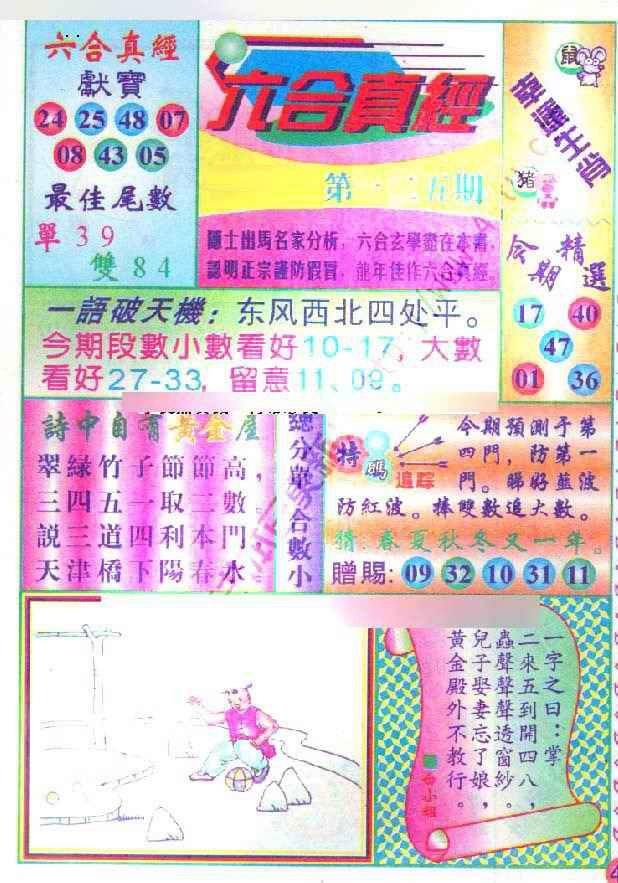 六合真經
獻寶
24 25 48 07
08 43 05
最佳尾數
單 3 9
雙 8 4
六合真經
第一二五期
隱士出馬名家分析，六合玄學盡在本書，
認明正宗謹防假冒，龍年佳作六合真經。
鼠
幸運生肖
豬
今期精選
17 40
47
01 36
一語破天機：东风西北四处平。
今期段數小數看好10-17，大數
看好27-33，留意11、09。
詩中自有黃金屋
翠綠竹子節節高，
三四五一取二數。
説三道四利本門
天津橋下陽春水
總分單 合數小
特碼
追踪
今期預測于第
四門，防第一
門。睇好藍波
防紅波。捧雙數追大數。
猜：春夏秋冬又一年。
贈賜：09 32 10 31 11
一字之曰：掌
二來五到開四八，
蟲聲聲聲透窗紗。
兒子娶妻忘了娘，
黃金殿外不教行。
小姐
4